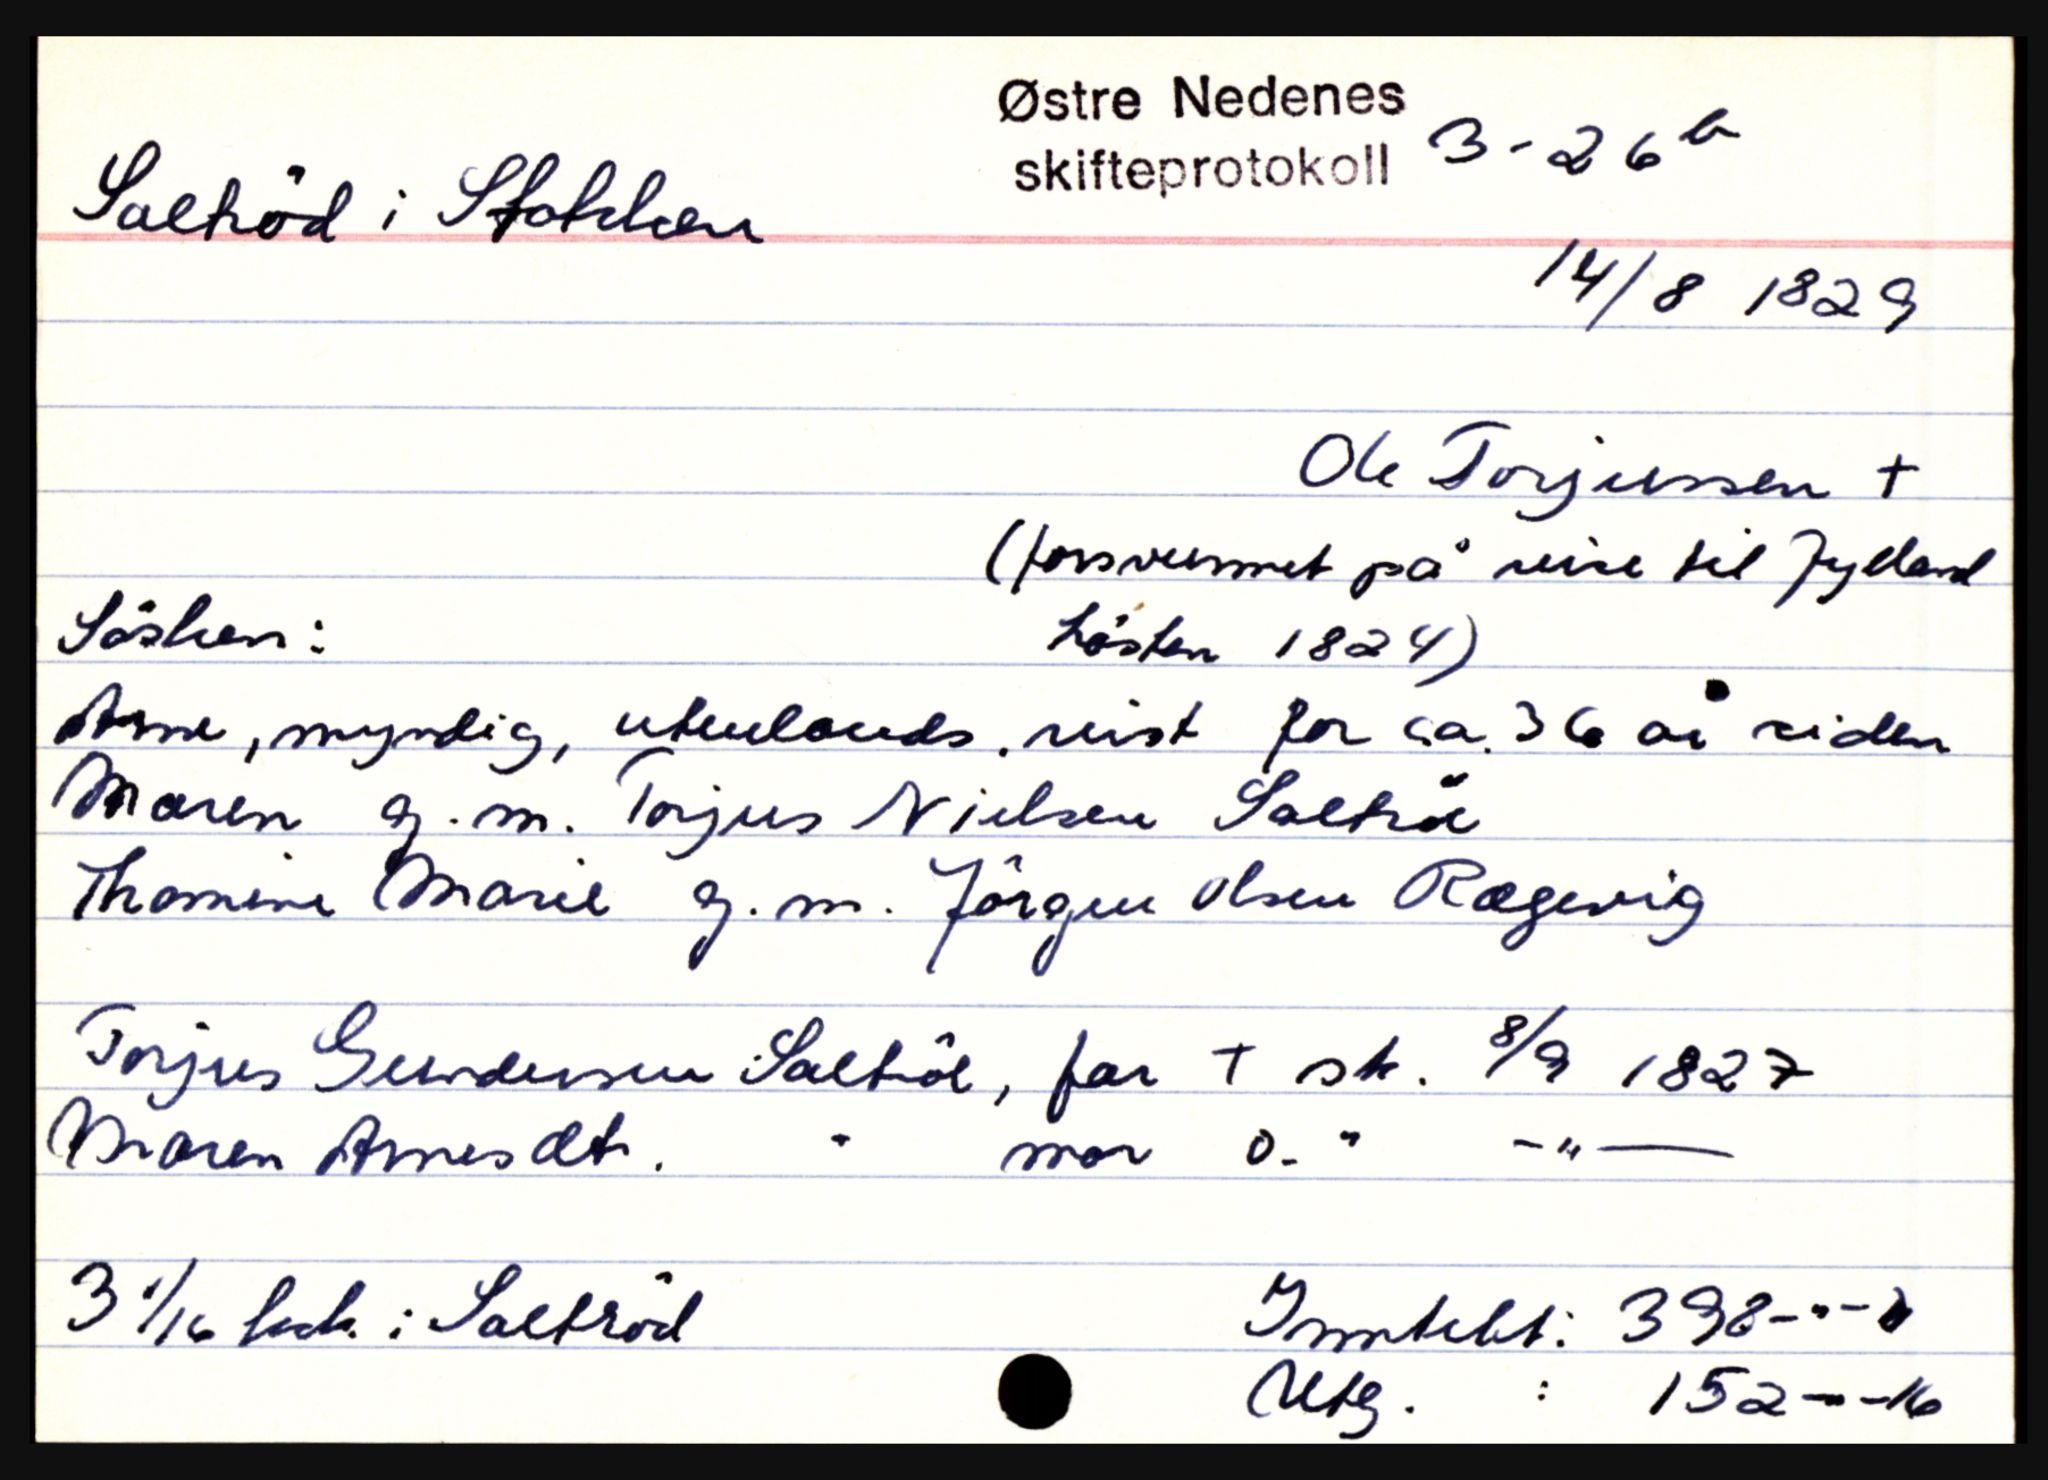 Østre Nedenes
skifteprotokoll 3-26 b
Saltröd i Stokken
14/8 1829
Ole Torjussen +
(forsvunnet på reise til Jylland
Sösken: hösten 1824)
Arne, myndig, utenlands, reist for ca. 36 år siden
Maren g. m. Torjus Nielsen Saltröe
Thomine Marie g. m. Jörgen Olsen Rægevig
Torjus Gundersen Saltröe, far + sk. 8/9 1827
Maren Arnesdtr. " mor o. " -"-
3 1/16 lisp. i Saltröd Inntekt: 398-"-
Utg. : 152-"-16